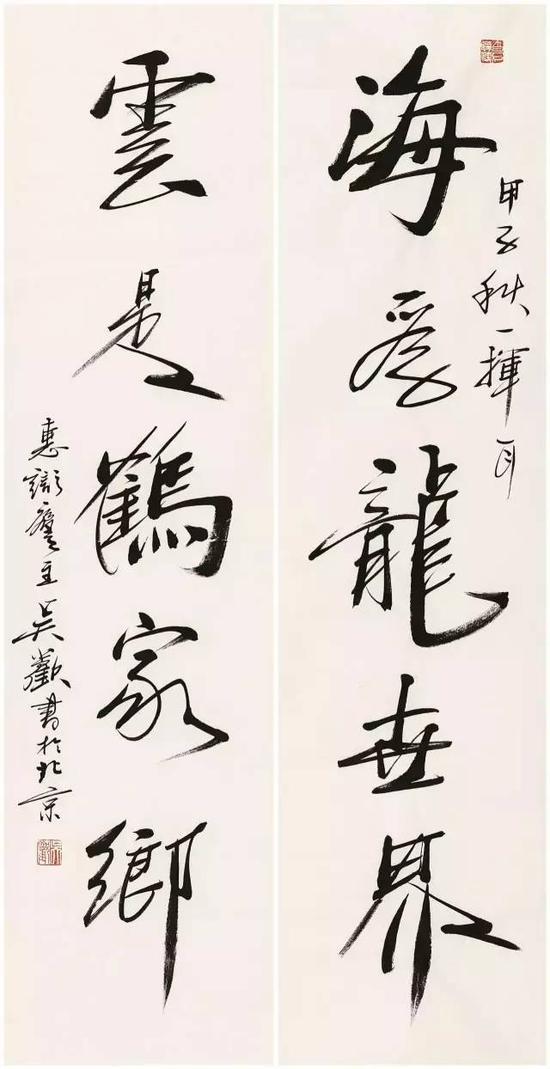 甲子秋一揮
海為龍世界
雲是鶴家鄉
主吳歡書於北京